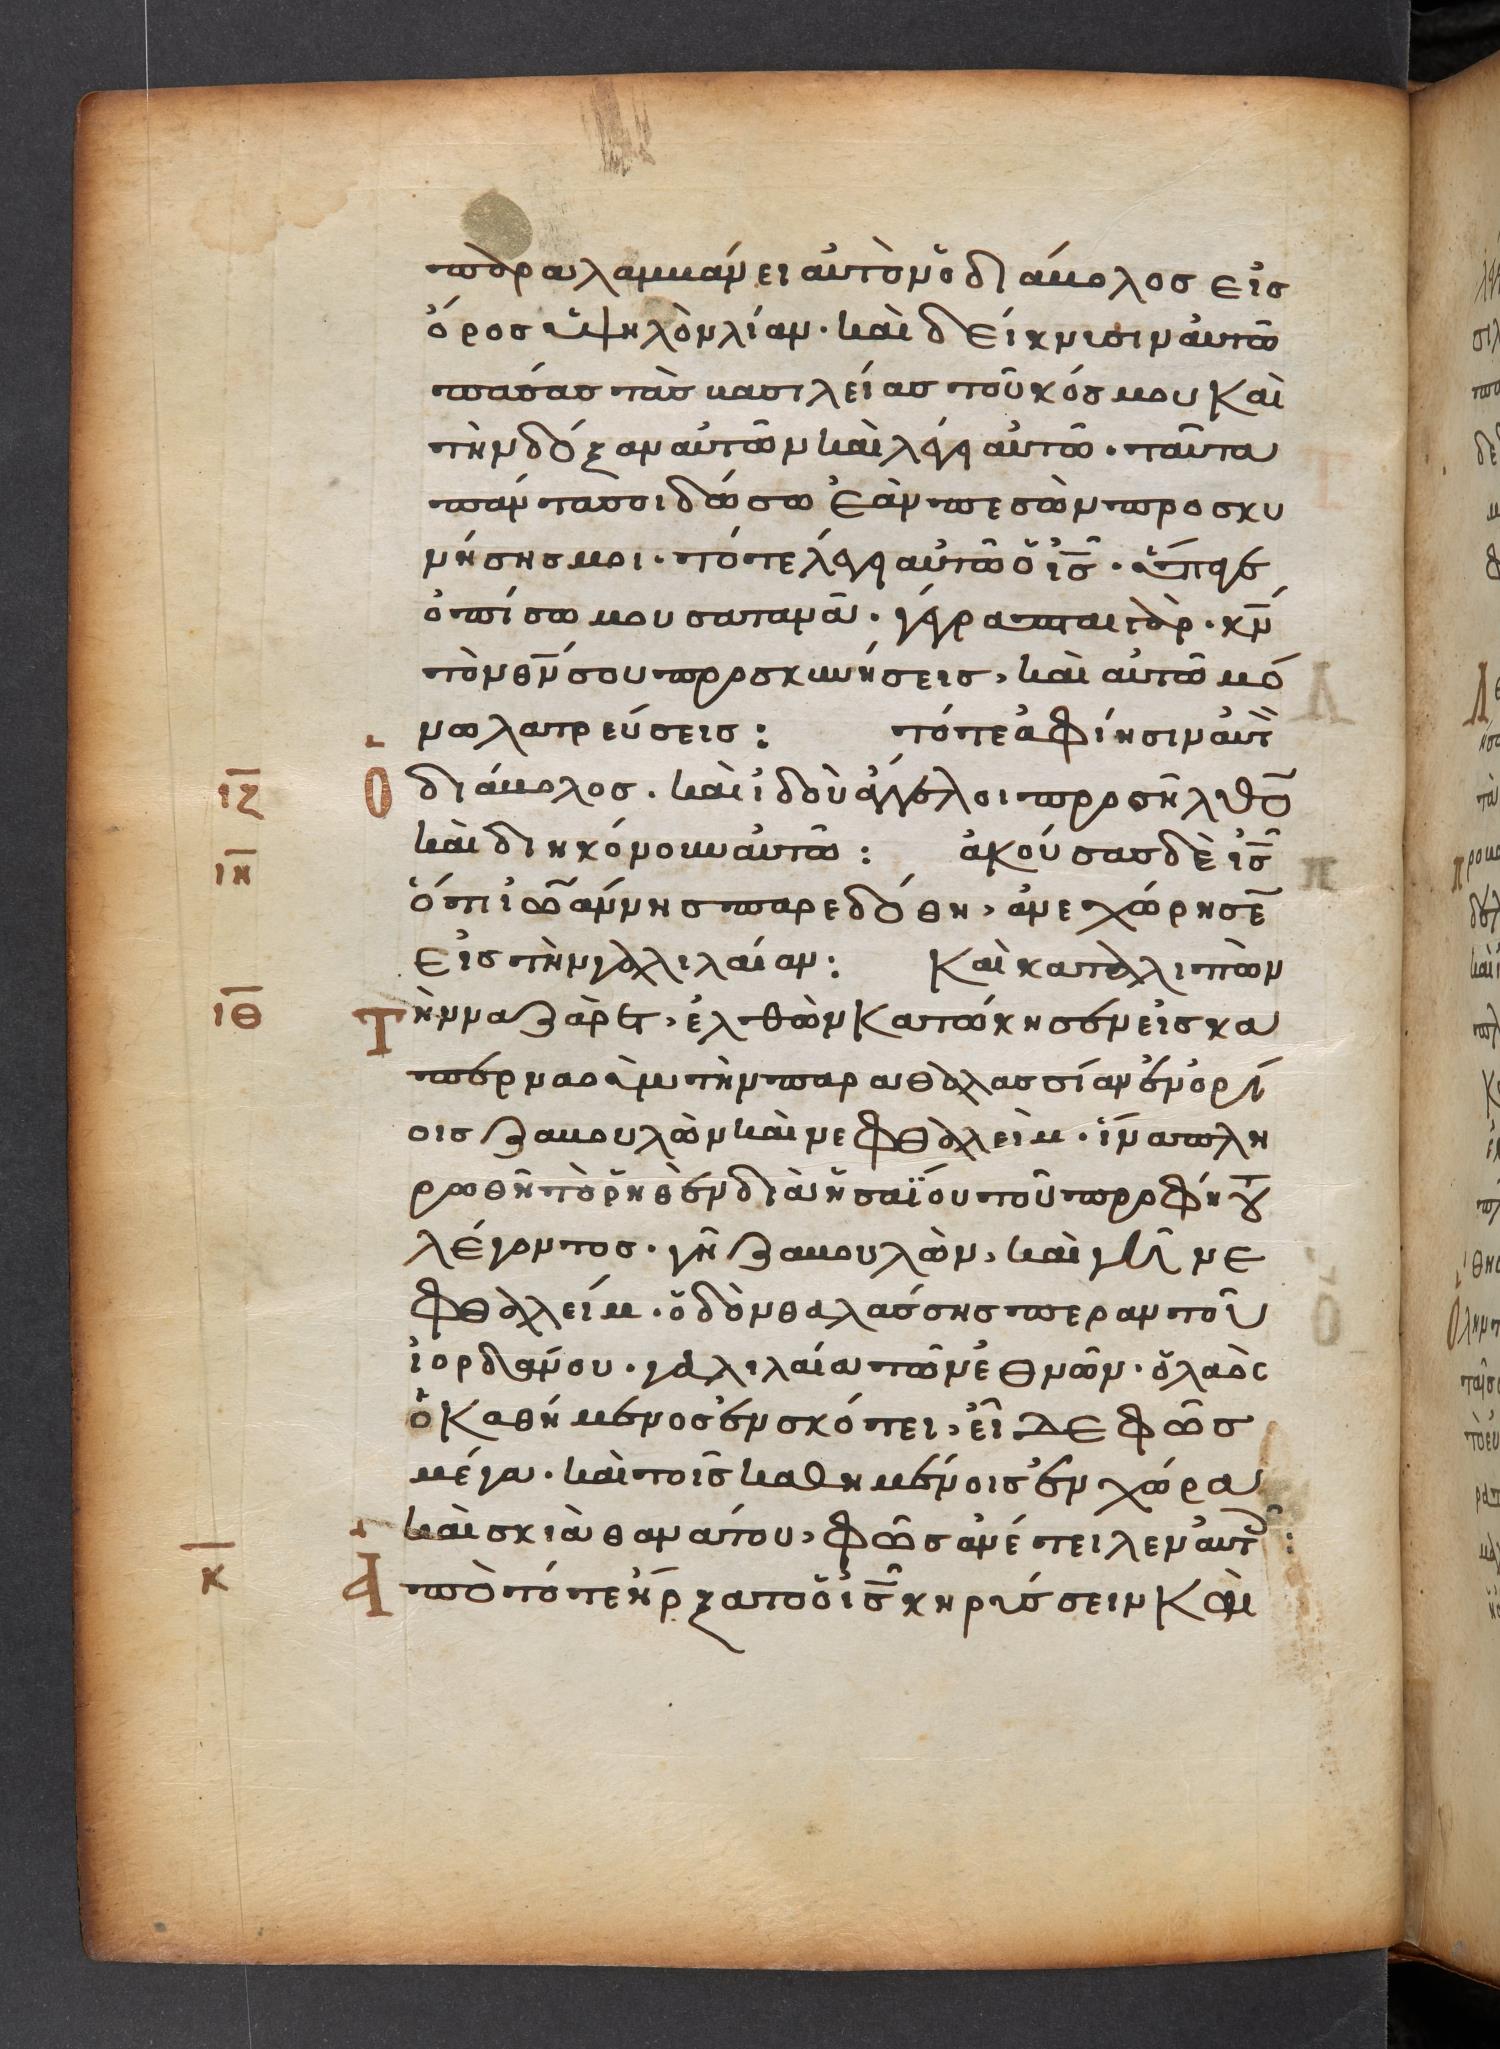 παραλαμβάνει αὐτὸν ὁ διάβολος εἰσ
ὄρος ὑψηλὸν λίαν· καὶ δείκνυσιν αὐτῶ
πάσας τὰς βασιλείας τοῦ κόσμου καὶ
τὴν δόξαν αὐτῶν καὶ λέγει αὐτῶ· ταῦτα
πάντα σοι δώσω ἐὰν πεσὼν προσκυ
νήσης μοι· τότε λέγει αὐτῶ ὁ ις̅· ὕπαγε
ὀπίσω μου σατανᾶ· γέγραπται γὰρ· κν̅
τὸν θν̅ σου προσκυνήσεις, καὶ αὐτῶ μό
νω λατρεύσεις: τότε ἀφίησιν αὐτ
ιζ̅ Ο διάβολος· καὶ ἰδοὺ ἄγγελοι προσῆλθο̅
ιη̅ καὶ διηκόνουν αὐτῶ: ἀκούσας δὲ ις̅
ὅτι ἰωάννης παρεδόθη, ἀνεχώρησε̅
εἰς τὴν γαλιλαίαν: Καὶ καταλιπὼν
ιθ̅ Τὴν ναζαρὲτ, ἐλθὼν κατώκησεν εἰς κα
περναοὺμ τὴν παραθαλασσίαν ἐν ὁρί
οις ζαβουλὼν καὶ νεφθαλεὶμ· ἵνα πλη
ρωθῆ τὸ ῥηθὲν διὰ ἡσαΐου τοῦ προφήτου
λέγοντος· γῆ ζαβουλὼν, καὶ γῆ νε
φθαλείμ· ὁδὸν θαλάσσης πέραν τοῦ
ἰορδάνου· γαλιλαία τῶν ἐθνῶν· ὁ λαὸς
ὁ καθήμενος ἐν σκότει, εἶδε φῶς
μέγα· καὶ τοῖς καθημένοις ἐν χώρα
καὶ σκιὰ θανάτου, φῶς ἀνέτειλεν αὐτ:
κ̅ Ἀπὸ τότε ἤρξατο ὁ ις̅ κηρύσσειν καὶ